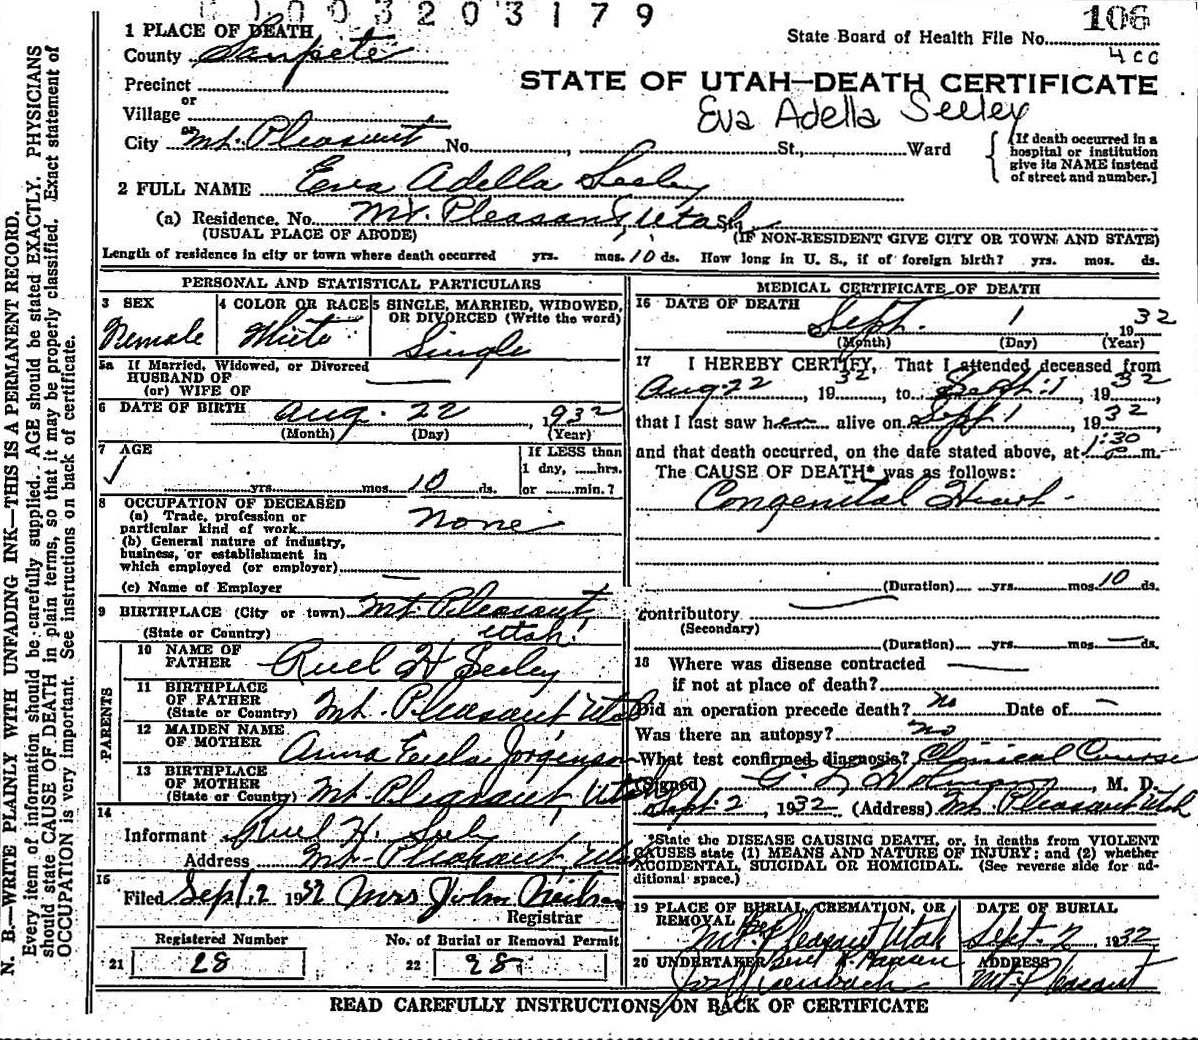 003203179
106
State Board of Health File No.
400
1 PLACE OF DEATH
County Sanpete
STATE OF UTAH—DEATH CERTIFICATE
Precinct
or
Village
Eva Adella Seeley
or
City Mt. Pleasant No. , St., Ward
[If death occurred in a
hospital or institution
give its NAME instead
of street and number.]
2 FULL NAME Eva Adella Seeley
(a) Residence. No. Mt. Pleasant, Utah St.
(USUAL PLACE OF ABODE) (IF NON-RESIDENT GIVE CITY OR TOWN AND STATE)
Length of residence in city or town where death occurred yrs. mos. 10 ds. How long in U. S., if of foreign birth? yrs. mos. ds.
PERSONAL AND STATISTICAL PARTICULARS
3 SEX
Female
4 COLOR OR RACE
White
5 SINGLE, MARRIED, WIDOWED,
OR DIVORCED (Write the word)
Single
5a If Married, Widowed, or Divorced
HUSBAND OF
(or) WIFE OF
6 DATE OF BIRTH
Aug. 22, 1932
(Month) (Day) (Year)
7 AGE
yrs. mos. 10 ds.
If LESS than
1 day, hrs.
or min.?
8 OCCUPATION OF DECEASED
(a) Trade, profession or
particular kind of work none
(b) General nature of industry,
business, or establishment in
which employed (or employer)
(c) Name of Employer
9 BIRTHPLACE (City or town) Mt. Pleasant,
(State or Country) Utah
PARENTS
10 NAME OF
FATHER Ruel H Seeley
11 BIRTHPLACE
OF FATHER
(State or Country) Mt. Pleasant Utah
12 MAIDEN NAME
OF MOTHER Anna Eula Jorgenson
13 BIRTHPLACE
OF MOTHER
(State or Country) Mt. Pleasant, Utah
14
Informant Ruel H. Seely
Address Mt. Pleasant, Utah
15
Filed Sept. 2 1932 Mrs John
Registrar
Registered Number
21 28
No. of Burial or Removal Permit
22 28
MEDICAL CERTIFICATE OF DEATH
16 DATE OF DEATH
Sept. 1, 1932
(Month) (Day) (Year)
17 I HEREBY CERTIFY, That I attended deceased from
Aug 22, 1932, to Sept. 1, 1932,
that I last saw her alive on Sept 1, 1932
and that death occurred, on the date stated above, at 1:30 m.
The CAUSE OF DEATH* was as follows:
Congenital Heart
(Duration) yrs. mos. 10 ds.
Contributory
(Secondary)
(Duration) yrs. mos. ds.
18 Where was disease contracted
if not at place of death?
Did an operation precede death? no Date of
Was there an autopsy? no
What test confirmed diagnosis? Clinical Course
(Signed) G. L. Holman, M. D.
Sept. 2, 1932 (Address) Mt. Pleasant Utah
*State the DISEASE CAUSING DEATH, or, in deaths from VIOLENT
CAUSES state (1) MEANS AND NATURE OF INJURY; and (2) whether
ACCIDENTAL, SUICIDAL OR HOMICIDAL. (See reverse side for ad-
ditional space.)
19 PLACE OF BURIAL, CREMATION, OR
REMOVAL
Mt. Pleasant Utah
DATE OF BURIAL
Sept. 2 1932
20 UNDERTAKER
ADDRESS
Mt. Pleasant
READ CAREFULLY INSTRUCTIONS ON BACK OF CERTIFICATE
N. B.—WRITE PLAINLY WITH UNFADING INK—THIS IS A PERMANENT RECORD.
Every item of information should be carefully supplied. AGE should be stated EXACTLY. PHYSICIANS
should state CAUSE OF DEATH in plain terms, so that it may be properly classified. Exact statement of
OCCUPATION is very important. See instructions on back of certificate.